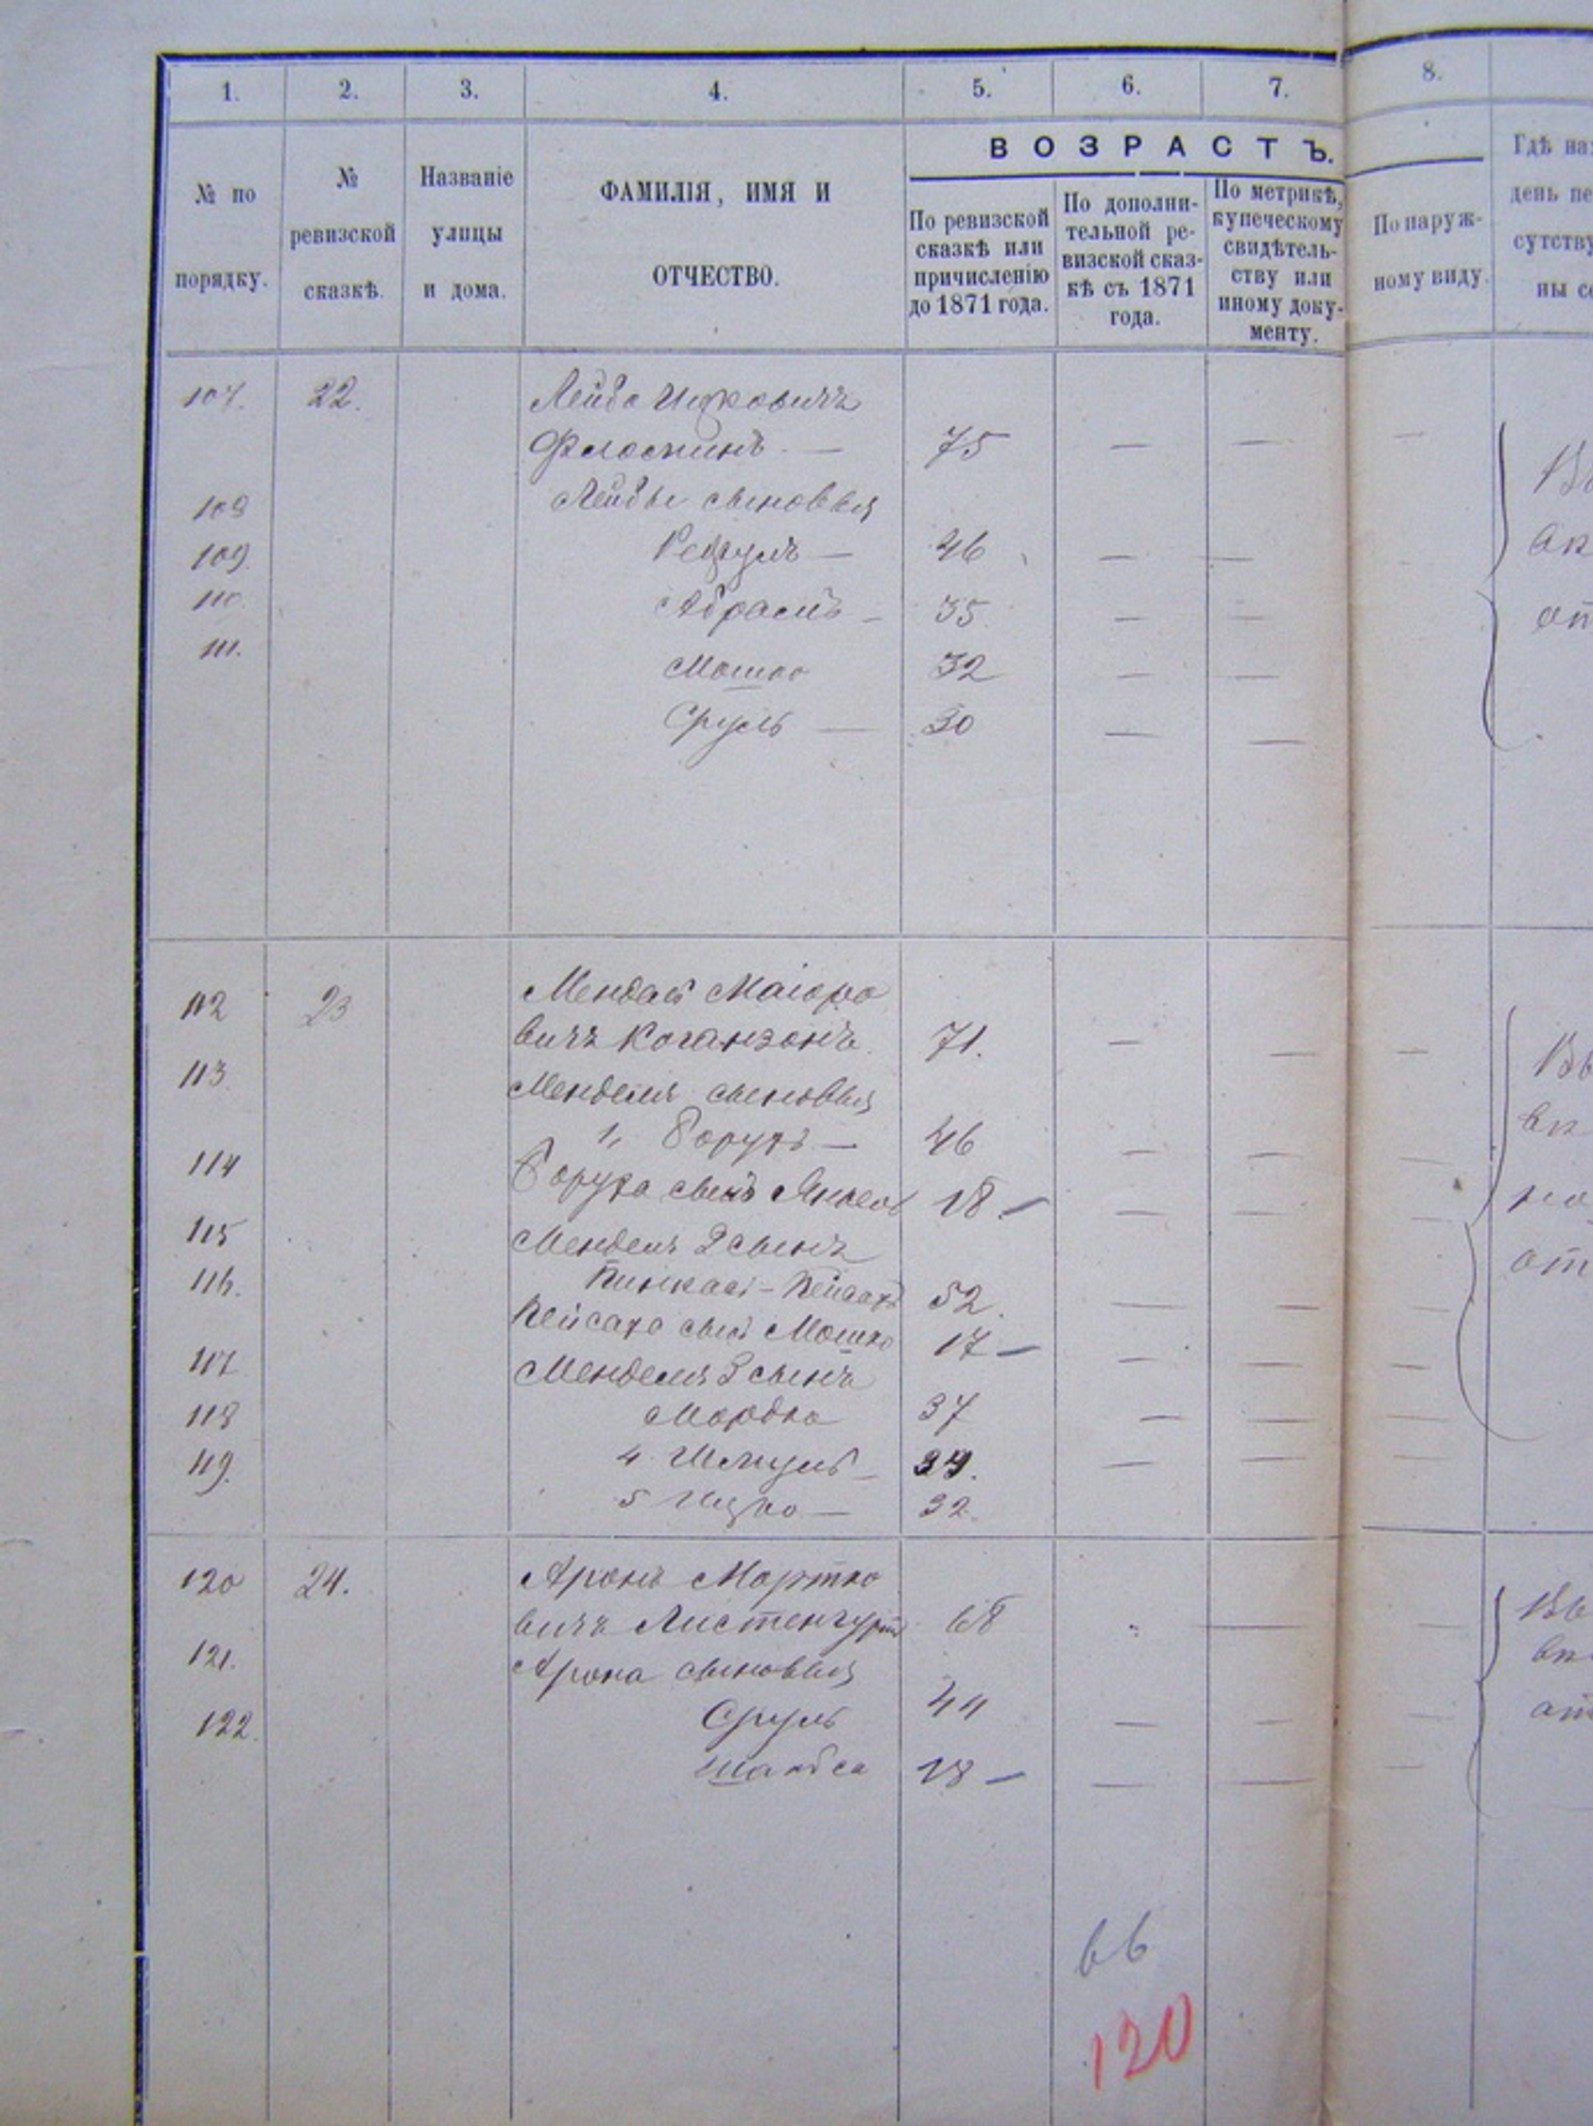 1. 2. 3. 4. 5. 6. 7. 8.
№ по порядку.
№ ревизской сказкѣ.
Названіе улицы и дома.
ФАМИЛІЯ, ИМЯ И ОТЧЕСТВО.
ВОЗРАСТЪ.
По ревизской сказкѣ или причисленію до 1871 года.
По дополнительной ревизской сказкѣ съ 1871 года.
По метрикѣ, купеческому свидѣтельству или иному документу.
По наружному виду.
Гдѣ на
день пе
сутству
ны со
107. 22. Лейба Ицковичъ
75
108 Лейбы сыновья
109 46
110. Абрамъ 35.
111. Мошко 32
Сруль 30
112 23 Мендель Маіоро
вичъ Коганзонъ 71.
113 Менделя сыновья
1, Борухъ 46
114 Боруха сынъ Янкель 18.
115 Менделя 2 сынъ
116. Пинкас-Пейсахъ 52.
Пейсаха сынъ Мошко 17
117 Менделя 3 сынъ
118 Мордко 37
119. 4 Шмуль 34.
5 Ицко 32.
120 24. Аронъ Мортко
вичъ 68
121. Арона сыновья
122. Сруль 44
18
66
120